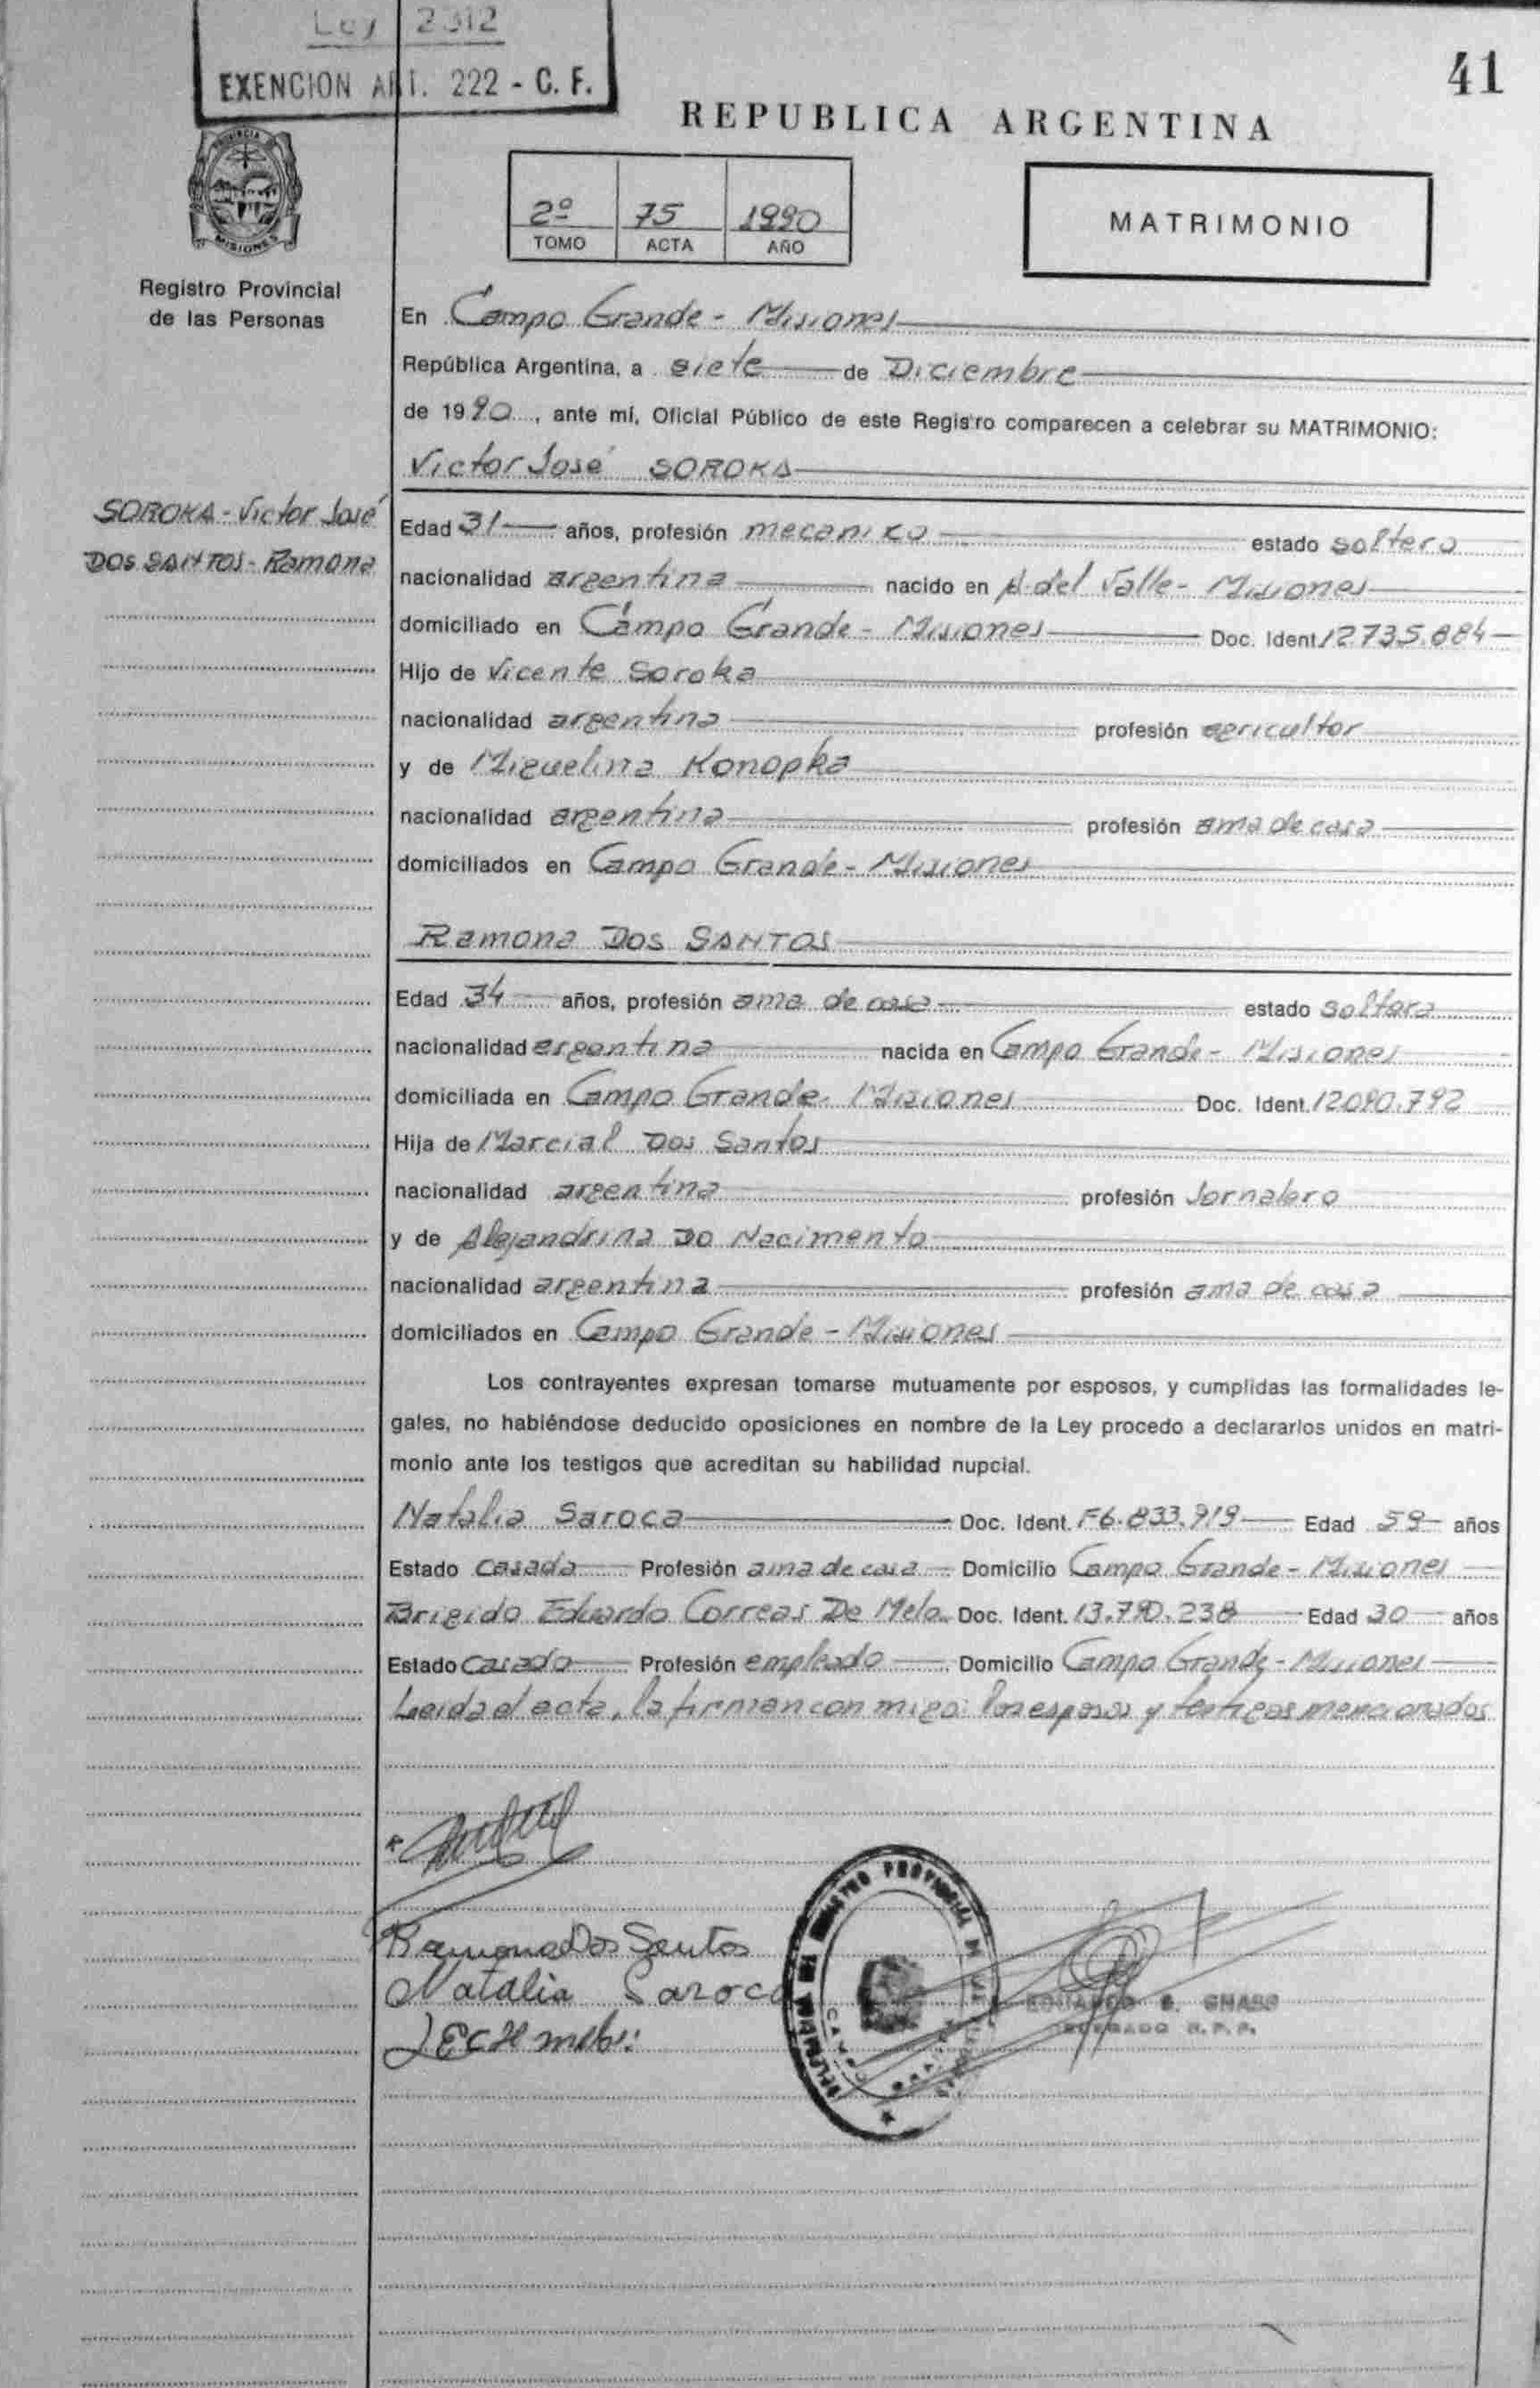 Ley 2312
EXENCION ART. 222 - C. F.
41
REPUBLICA ARGENTINA
PROVINCIA
MISIONES
2º 75 1990
TOMO ACTA AÑO
MATRIMONIO
Registro Provincial
de las Personas
En Campo Grande - Misiones
República Argentina, a siete de Diciembre
de 1990, ante mí, Oficial Público de este Registro comparecen a celebrar su MATRIMONIO:
Victor José SOROKA
SOROKA - Victor José
DOS SANTOS - Ramona
Edad 31 años, profesión mecanico estado soltero
nacionalidad argentina nacido en A. del Valle - Misiones
domiciliado en Campo Grande - Misiones Doc. Ident. 12.735.884
Hijo de Vicente Soroka
nacionalidad argentina profesión agricultor
y de Miguelina Konopka
nacionalidad argentina profesión ama de casa
domiciliados en Campo Grande - Misiones
Ramona DOS SANTOS
Edad 34 años, profesión ama de casa estado soltera
nacionalidad argentina nacida en Campo Grande - Misiones
domiciliada en Campo Grande - Misiones Doc. Ident. 12.090.792
Hija de Marcial Dos Santos
nacionalidad argentina profesión Jornalero
y de Alejandrina Do Nacimento
nacionalidad argentina profesión ama de casa
domiciliados en Campo Grande - Misiones
Los contrayentes expresan tomarse mutuamente por esposos, y cumplidas las formalidades le-
gales, no habiéndose deducido oposiciones en nombre de la Ley procedo a declararlos unidos en matri-
monio ante los testigos que acreditan su habilidad nupcial.
Natalia Saroca Doc. Ident. F6.833.919 Edad 59 años
Estado Casada Profesión ama de casa Domicilio Campo Grande - Misiones
Brigido Eduardo Correas De Melo Doc. Ident. 13.790.238 Edad 30 años
Estado Casado Profesión empleado Domicilio Campo Grande - Misiones
Leida el acta, la firman con migo: los esposos y testigos mencionados
Ramona Dos Santos
Natalia Saroca
EDUARDO
DELEGADO R.P.P.